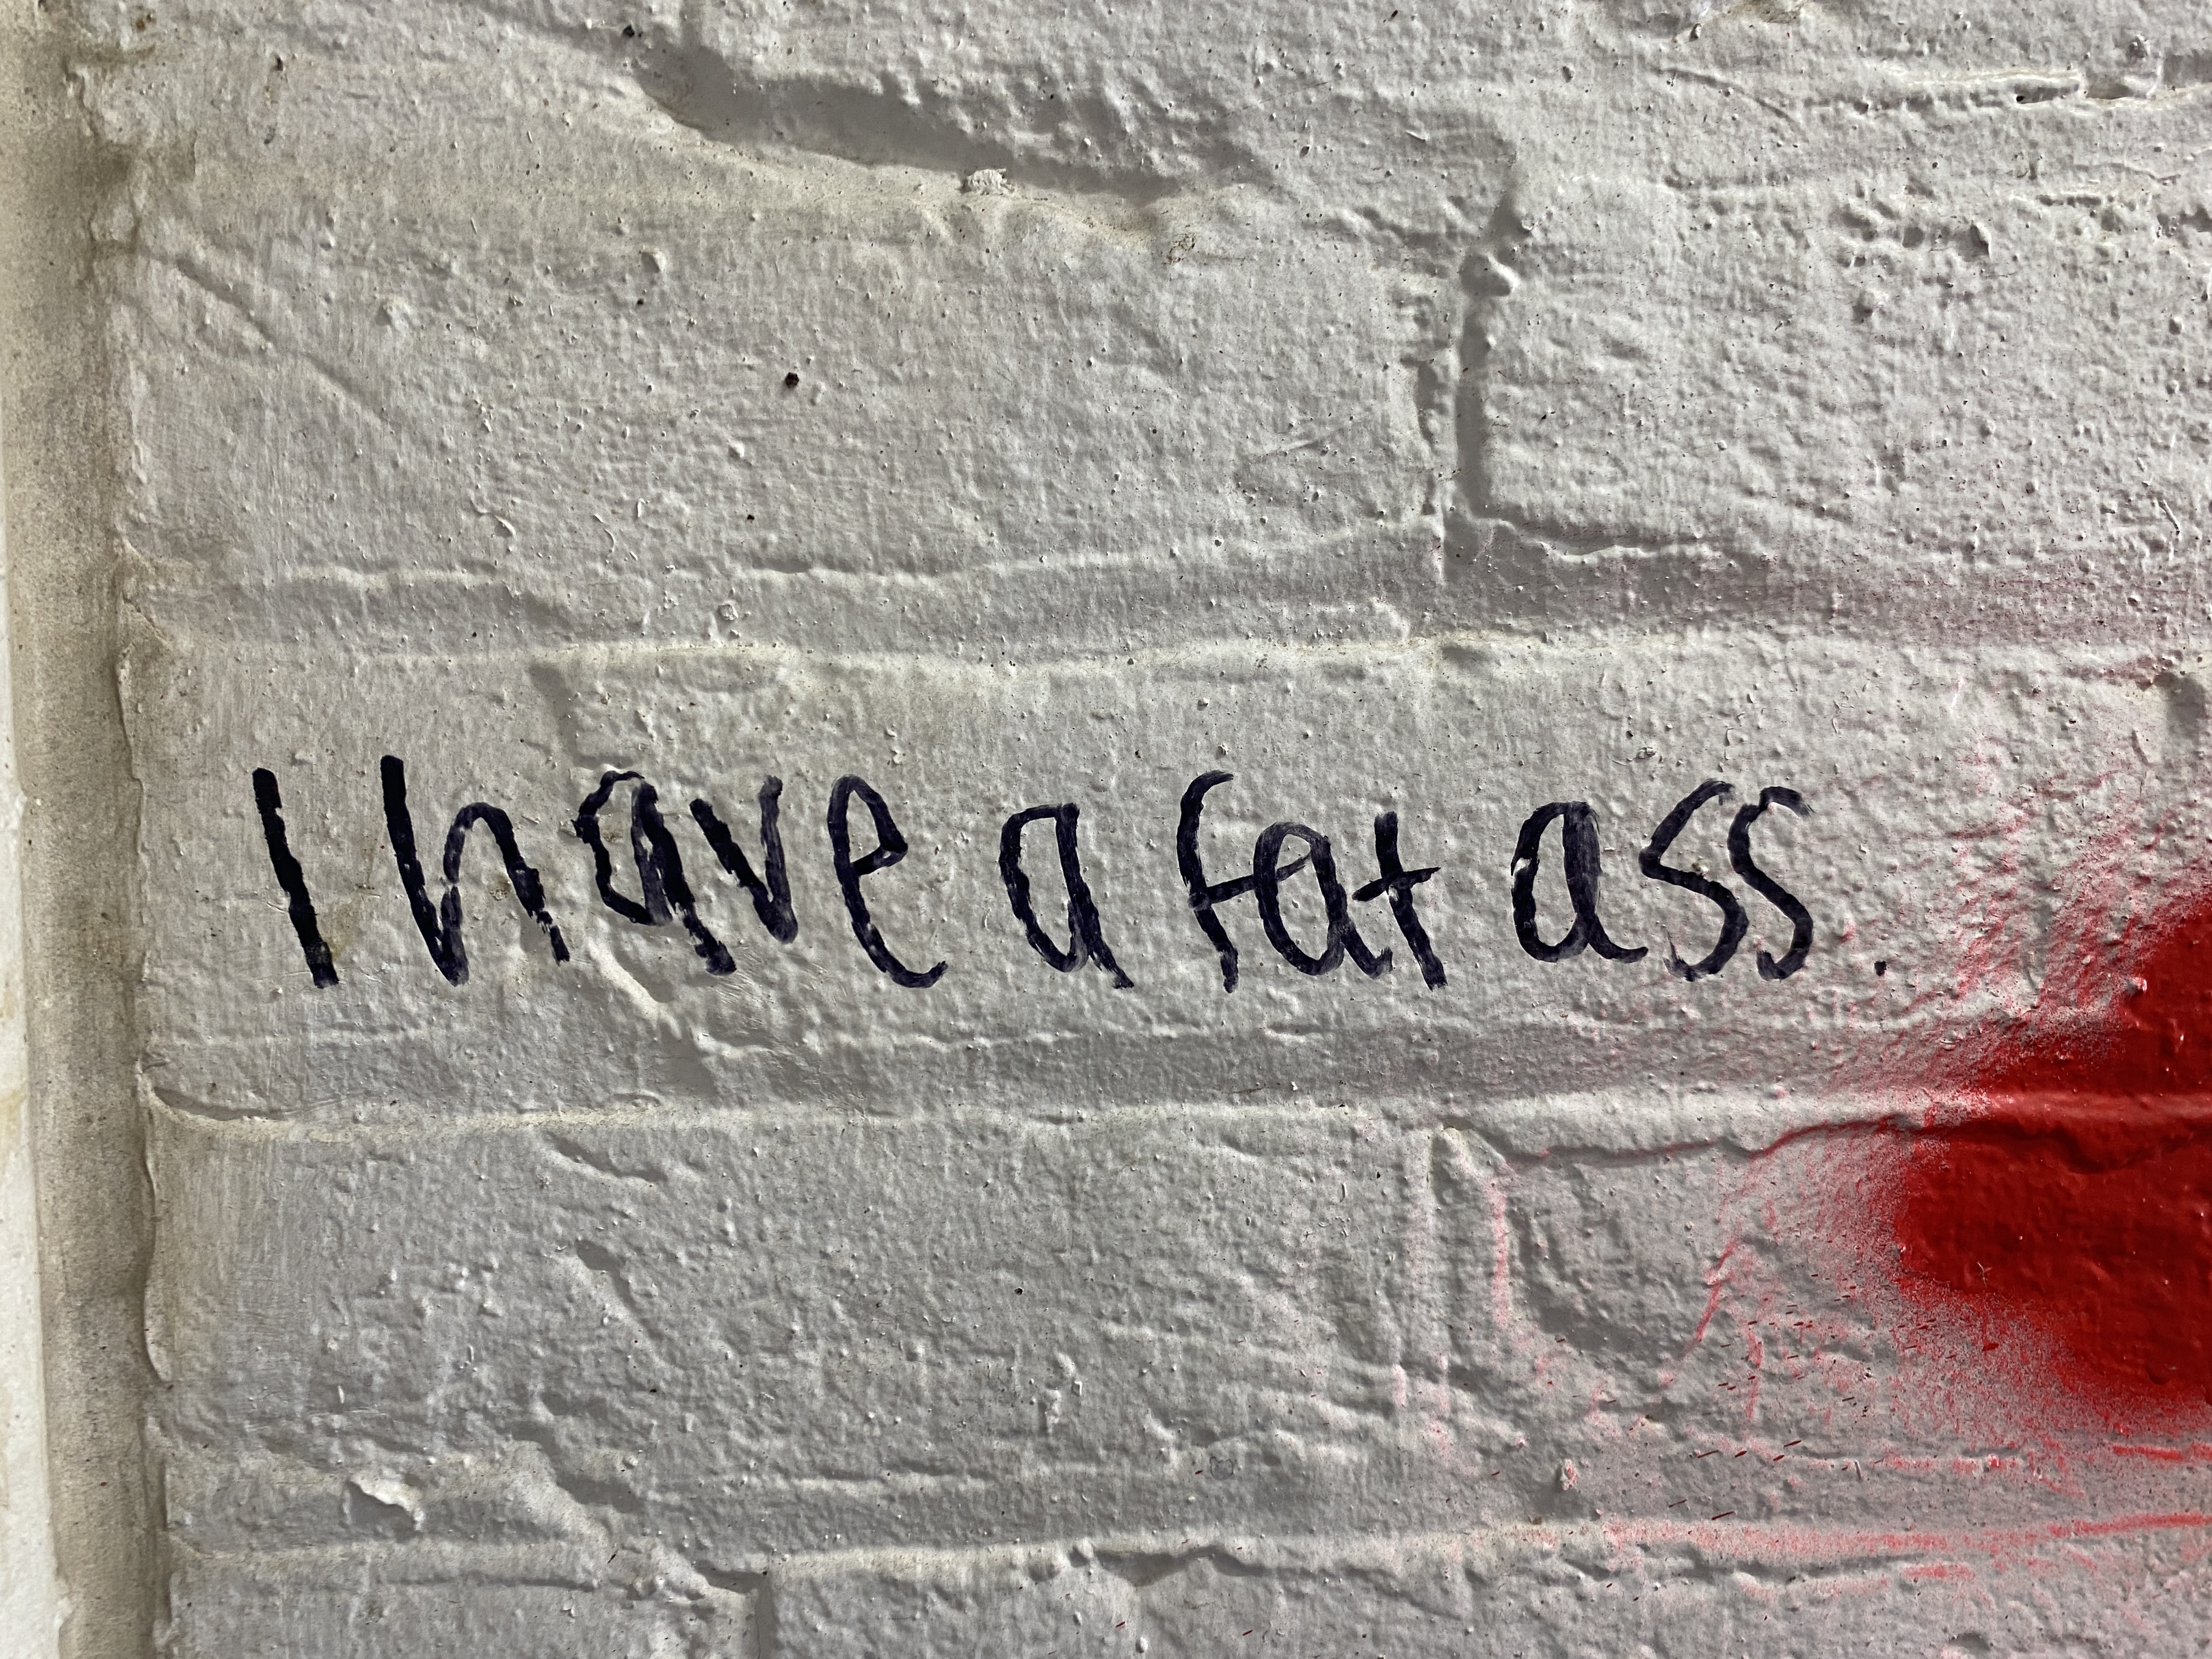 I have a fat ass.